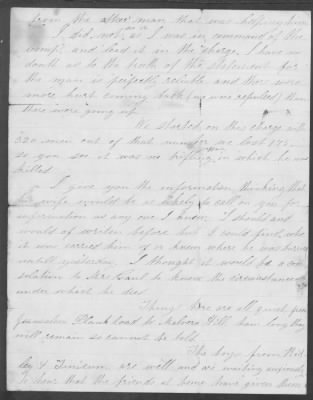 from the other man that was helping him
I did not as I was in command of the
comp. and lead it in the charge. I have no
doubt as to the truth of the statement for
the man is perfectly reliable and there were
more hurt coming back (we were repulsed) than
there were going up.
We started on this charge with
320 men out of that number we lost 175
so you see it was no trifling in which he was
killed.
I give you the information thinking that
his wife would be as likely to call on you for
information as any one I know. I should and
would of writen before but I could find who
it was carried him of or knew where he was buried
untill yesterday. I thought it would be a con-
solation to Mrs to know the circumstances
under which he died.
Things here are all quiet from
Jerusalem Plank Road to Malvern Hill, how long they
will remain so cannot be told.
The boys from
& are well and are waiting anxiously
To hear that the friends at home have given them